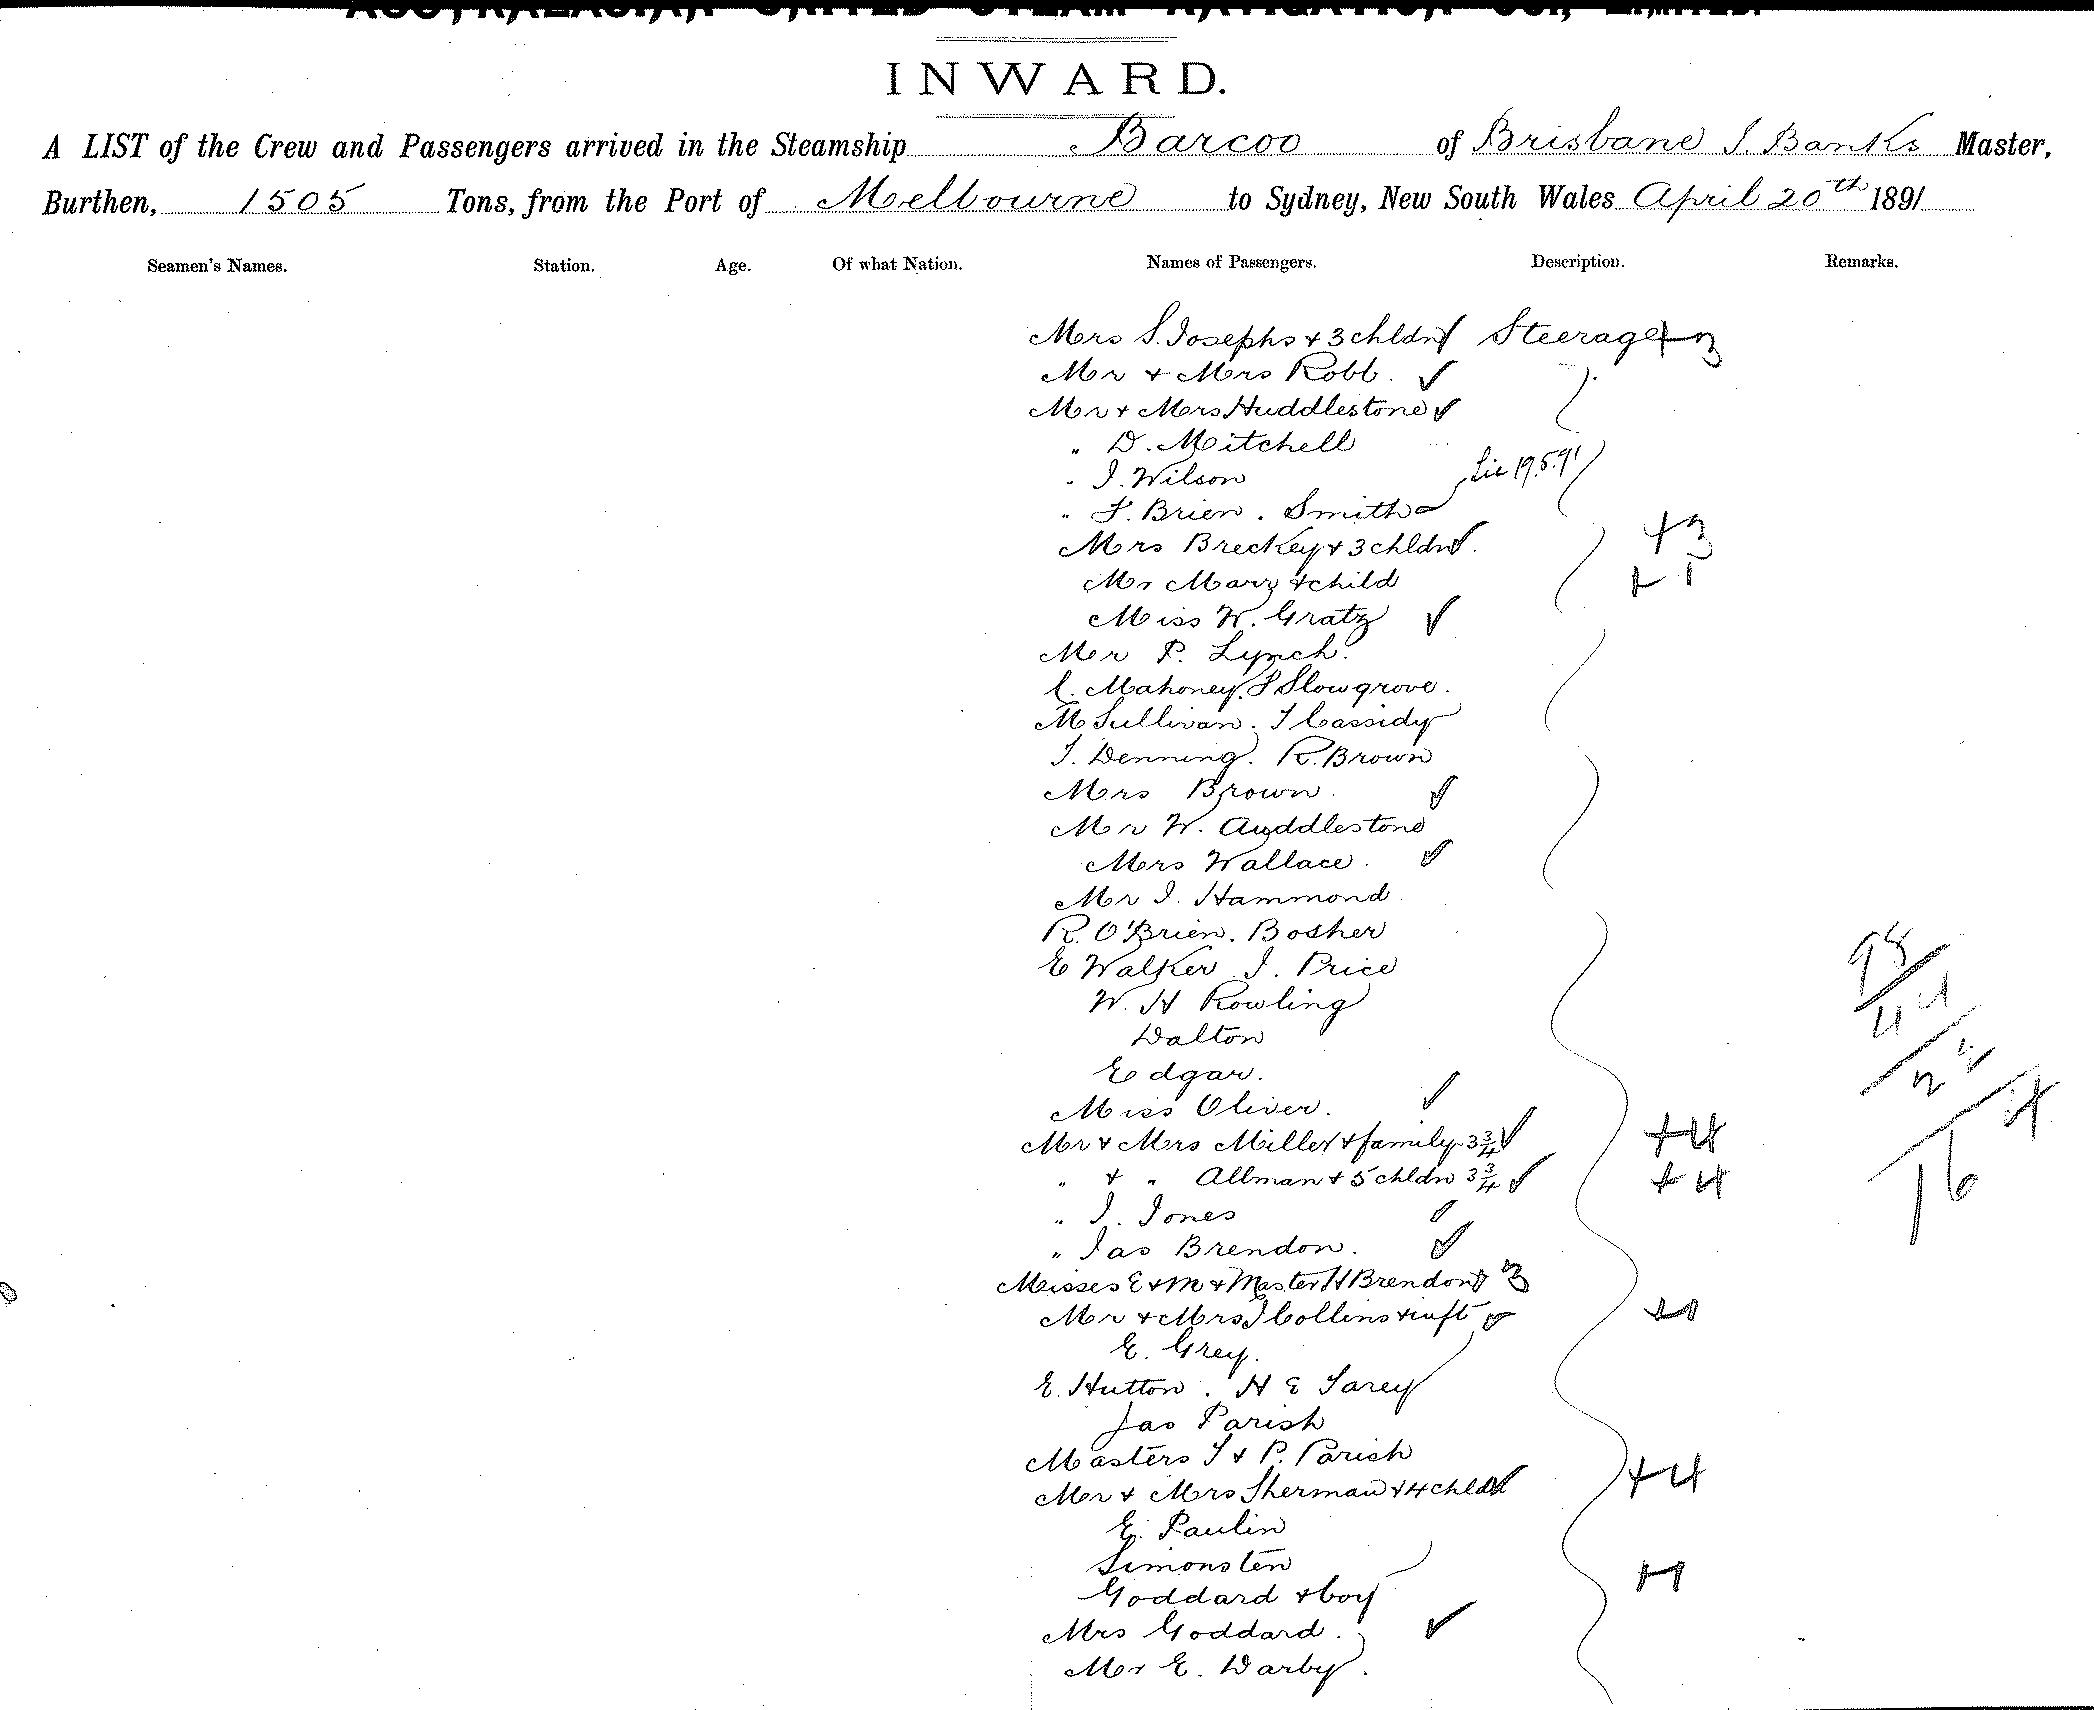 AUSTRALASIAN UNITED STEAM NAVIGATION CO., LIMITED.
INWARD.
A LIST of the Crew and Passengers arrived in the Steamship Barcoo of Brisbane J. Banks Master,
Burthen, 1505 Tons, from the Port of Melbourne to Sydney, New South Wales April 20th 1891
Seamen's Names. Station. Age. Of what Nation. Names of Passengers. Description. Remarks.
Mrs S. Josephs + 3 chldn Steerage + 3
Mr + Mrs Robb.
Mr + Mrs Huddlestone
" D. Mitchell
" J. Wilson
" F. Brien. Smith
Mrs Breckey + 3 chldn + 3
Mr Marz + child + 1
Miss W. Gratz
Mr P. Lynch.
C. Mahoney. S Slowgrove.
M Sullivan. J Cassidy
J. Denning. R. Brown
Mrs Brown.
Mr W. Auddlestone
Mrs Wallace.
Mr J. Hammond
R. O'Brien. Bosher
E Walker J. Price
W. H Rowling
Dalton
Edgar.
Miss Oliver.
Mr + Mrs Miller + family 3 3/4 + 4
" + " Allman + 5 chldn 3 3/4 + 4
" J. Jones
" Jas Brendon.
Misses E + M + Master H Brendon 3
Mr + Mrs J Collins + inft + 1
E. Grey.
E. Hutton. H E Sarey
Jas Parish
Masters J + P. Parish
Mr + Mrs Sherman + 4 chldn + 4
E. Paulin
Simonsten
Goddard + boy + 1
Mrs Goddard.
Mr E. Darby.